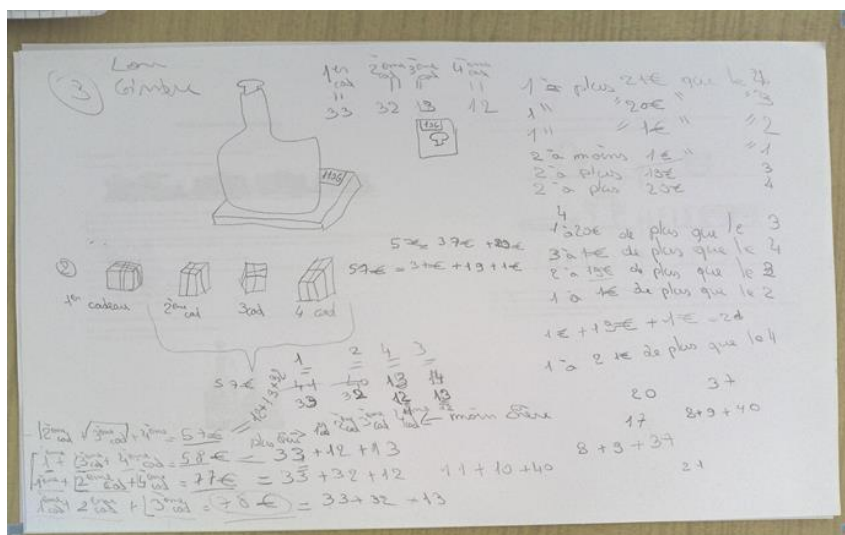 3
1er cad 2ème cad 3ème cad 4ème cad
= = = =
33 32 13 12
136
1136
1 a plus 21€ que le 4
1 " " 20€ " " 3
1 " " 1€ " " 2
2 a moins 1€ " " 1
2 a plus 19€ 3
2 a plus 20€ 4
4
1 a 20€ de plus que le 3
3 a 1€ de plus que le 4
2 a 19€ de plus que le 3
1 a 1€ de plus que le 2
1€ + 19€ + 1€ = 21
1 a 21€ de plus que le 4
57€ = 37€ + 20€
57€ = 37€ + 19 + 1€
2
1er cadeau 2ème cad 3 cad 4 cad
57€
1 2 4 3
= = = =
41 40 13 14
33 32 12 13
20 37
17 8+9+40
8+9+37
21
2ème cad + 3ème cad + 4ème = 57€ = 13+13+32
plus cher 1 2ème 3ème 4ème moin chère
1ème + 3ème cad + 4ème cad = 58€ = 33+12+13
1ème + 2ème cad + 4ème cad = 77€ = 33+32+12
1ème cad 2ème cad + 3ème cad = 78€ = 33+32+13
11+10+40